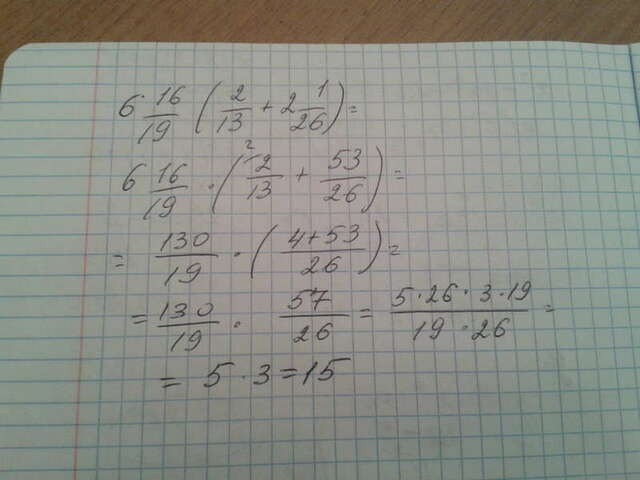 6· 16/19 (2/13 + 2 1/26) =
6 16/19 · (2/13 ² + 53/26) =
= 130/19 · (4+53/26) =
= 130/19 · 57/26 = 5·26·3·19/19·26 =
= 5·3=15